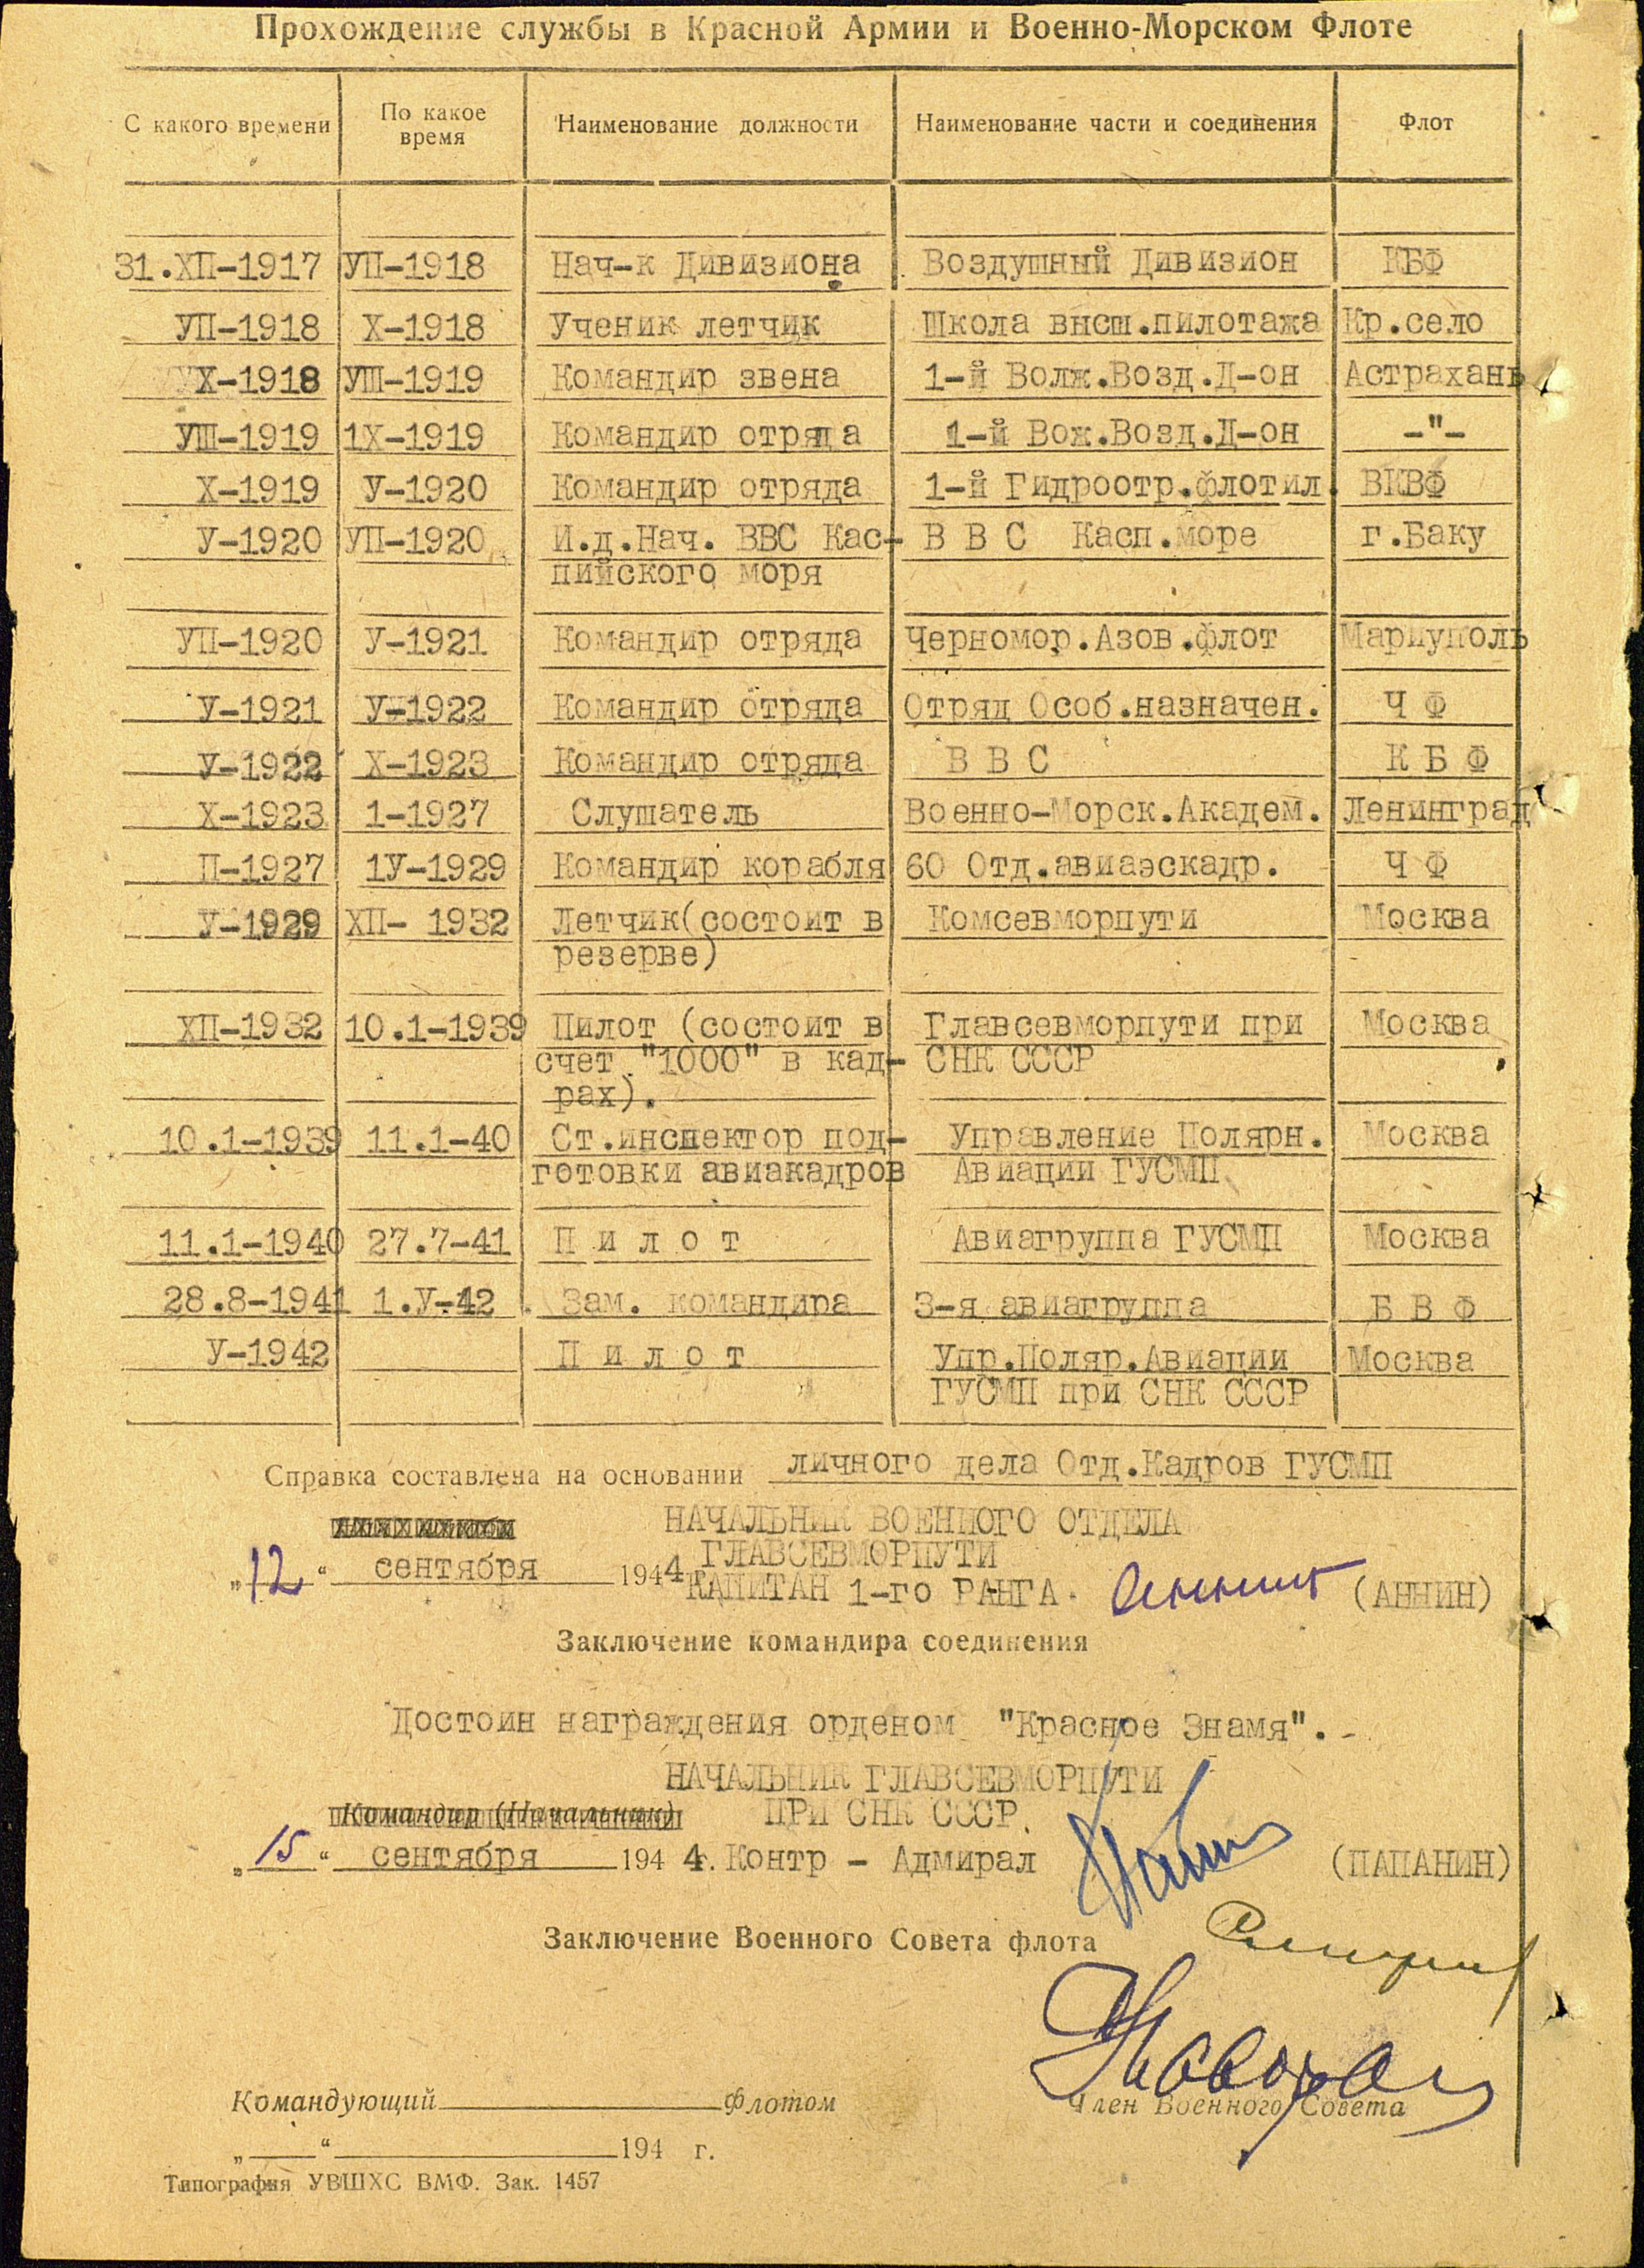 Прохождение службы в Красной Армии и Военно-Морском Флоте
С какого времени По какое время Наименование должности Наименование части и соединения Флот
31.ХП-1917 УП-1918 Нач-к Дивизиона Воздушный Дивизион КБФ
УП-1918 Х-1918 Ученик летчик Школа внсш.пилотажа Кр.село
Х-1918 УШ-1919 Командир звена 1-й Волж.Возд.Д-он Астрахань
УШ-1919 1Х-1919 Командир отряда 1-й Вож.Возд.Д-он -"-
Х-1919 У-1920 Командир отряда 1-й Гидроотр.флотил. ВКВФ
У-1920 УП-1920 И.д.Нач. ВВС Кас- В В С Касп.море г.Баку
пийского моря
УП-1920 У-1921 Командир отряда Черномор.Азов.флот Мариуполь
У-1921 У-1922 Командир отряда Отряд Особ.назначен. Ч Ф
У-1922 Х-1923 Командир отряда В В С К Б Ф
Х-1923 1-1927 Слушатель Военно-Морск.Академ. Ленинград
П-1927 1У-1929 Командир корабля 60 Отд.авиаэскадр. Ч Ф
У-1929 ХП- 1932 Летчик(состоит в Комсевморпути Москва
резерве)
ХП-1932 10.1-1939 Пилот (состоит в Главсевморпути при Москва
счет "1000" в кад- СНК СССР
рах).
10.1-1939 11.1-40 Ст.инспектор под- Управление Полярн. Москва
готовки авиакадров Авиации ГУСМП
11.1-1940 27.7-41 П и л о т Авиагруппа ГУСМП Москва
28.8-1941 1.У-42 Зам. командира 3-я авиагруппа Б В Ф
У-1942 П и л о т Упр.Поляр.Авиации Москва
ГУСМП при СНК СССР
Справка составлена на основании личного дела Отд.Кадров ГУСМП
НАЧАЛЬНИК ВОЕННОГО ОТДЕЛА
ГЛАВСЕВМОРПУТИ
„12“ сентября 1944 КАПИТАН 1-го РАНГА. (АННИН)
Заключение командира соединения
Достоин награждения орденом "Красное Знамя".-
НАЧАЛЬНИК ГЛАВСЕВМОРПУТИ
Командир (Начальник) ПРИ СНК СССР.
„15“ сентября 1944. Контр - Адмирал (ПАПАНИН)
Заключение Военного Совета флота
Командующий флотом Член Военного Совета
„ “ 194 г.
Типография УВШХС ВМФ. Зак. 1457